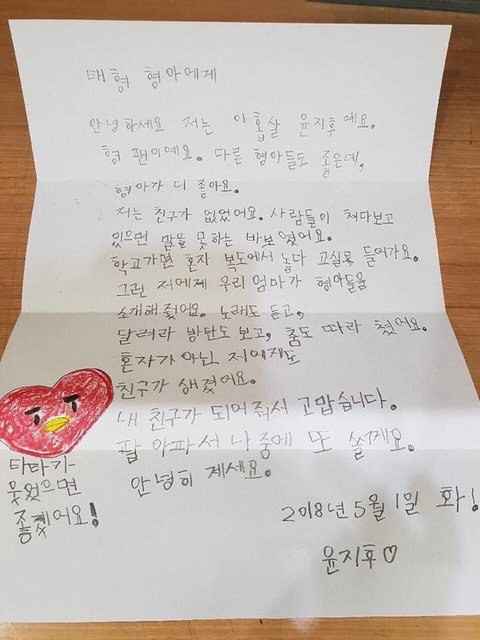 태형 형아에게
안녕하세요 저는 아홉살 윤지후예요.
형 팬이예요. 다른 형아들도 좋은데,
형아가 더 좋아요.
저는 친구가 없었어요. 사람들이 쳐다보고
있으면 말을 못하는 바보였어요.
학교가면 혼자 복도에서 놀다 교실로 들어가요.
그런 저에게 우리 엄마가 형아들을
소개해 줬어요. 노래도 듣고,
달려라 방탄도 보고, 춤도 따라 췄어요.
혼자가 아닌 저에게도
친구가 생겼어요.
내 친구가 되어줘서 고맙습니다.
팔 아파서 나중에 또 쓸께요.
안녕히 계세요.
2018년 5월 1일 화!
윤지후♡
타타가
웃었으면
좋겠어요!